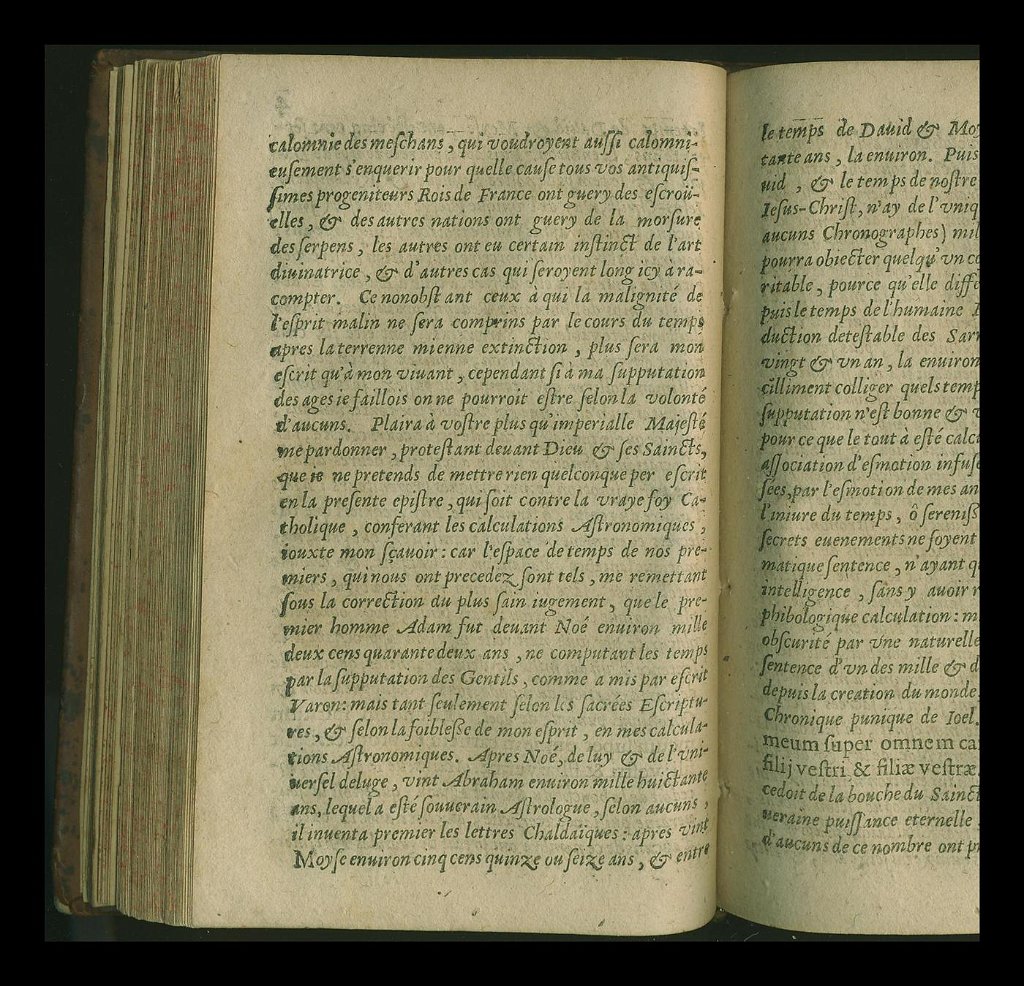 calomnie des meſchans, qui voudroyent auſſi calomni-
euſement s'enquerir pour quelle cauſe tous vos antiquiſ-
ſimes progeniteurs Rois de France ont guery des eſcroü-
elles, & des autres nations ont guery de la morſure
des ſerpens, les autres ont eu certain inſtinct de l'art
diuinatrice, & d'autres cas qui ſeroyent long icy à ra-
compter. Ce nonobſtant ceux à qui la malignité de
l'eſprit malin ne ſera comprins par le cours du temps
apres la terrenne mienne extinction, plus ſera mon
eſcrit qu'à mon viuant, cependant ſi à ma ſupputation
des ages ie faillois on ne pourroit eſtre ſelon la volonté
d'aucuns. Plaira à voſtre plus qu'imperialle Majeſté
me pardonner, proteſtant deuant Dieu & ſes Saincts,
que ie ne pretends de mettre rien quelconque per eſcrit
en la preſente epiſtre, qui ſoit contre la vraye foy Ca-
tholique, conferant les calculations Aſtronomiques,
iouxte mon ſçauoir: car l'eſpace de temps de nos pre-
miers, qui nous ont precedez ſont tels, me remettant
ſous la correction du plus ſain iugement, que le pre-
mier homme Adam fut deuant Noé enuiron mille
deux cens quarante deux ans, ne computant les temps
par la ſupputation des Gentils, comme a mis par eſcrit
Varon: mais tant ſeulement ſelon les ſacrées Eſcriptu-
res, & ſelon la foibleſſe de mon eſprit, en mes calcula-
tions Aſtronomiques. Apres Noé, de luy & de l'vni-
uerſel deluge, vint Abraham enuiron mille huictante
ans, lequel a eſté ſouuerain Aſtrologue, ſelon aucuns,
il inuenta premier les lettres Chaldaïques: apres vint
Moyſe enuiron cinq cens quinze ou ſeize ans, & entre
le temps de Dauid & Moy
tante ans, la enuiron. Puis
uid, & le temps de noſtre
Ieſus-Chriſt, n'ay de l'vniq
aucuns Chronographes) mil
pourra obiecter quelqu'vn ce
ritable, pource qu'elle diffe
puis le temps de l'humaine
duction deteſtable des Sarr
vingt & vn an, la enuiron
cilliment colliger quels temp
ſupputation n'eſt bonne & v
pour ce que le tout à eſté calcu
aſſociation d'eſmotion infuſe
ſées, par l'eſmotion de mes an
l'iniure du temps, ô ſereniſſ
ſecrets euenements ne ſoyent
matique ſentence, n'ayant q
intelligence, ſans y auoir r
phibologique calculation: m
obſcurité par vne naturelle
ſentence d'vn des mille & d
depuis la creation du monde
Chronique punique de Ioel.
meum ſuper omnem ca
filij veſtri & filiæ veſtræ.
cedoit de la bouche du Sainct
ueraine puiſſance eternelle
d'aucuns de ce nombre ont pr